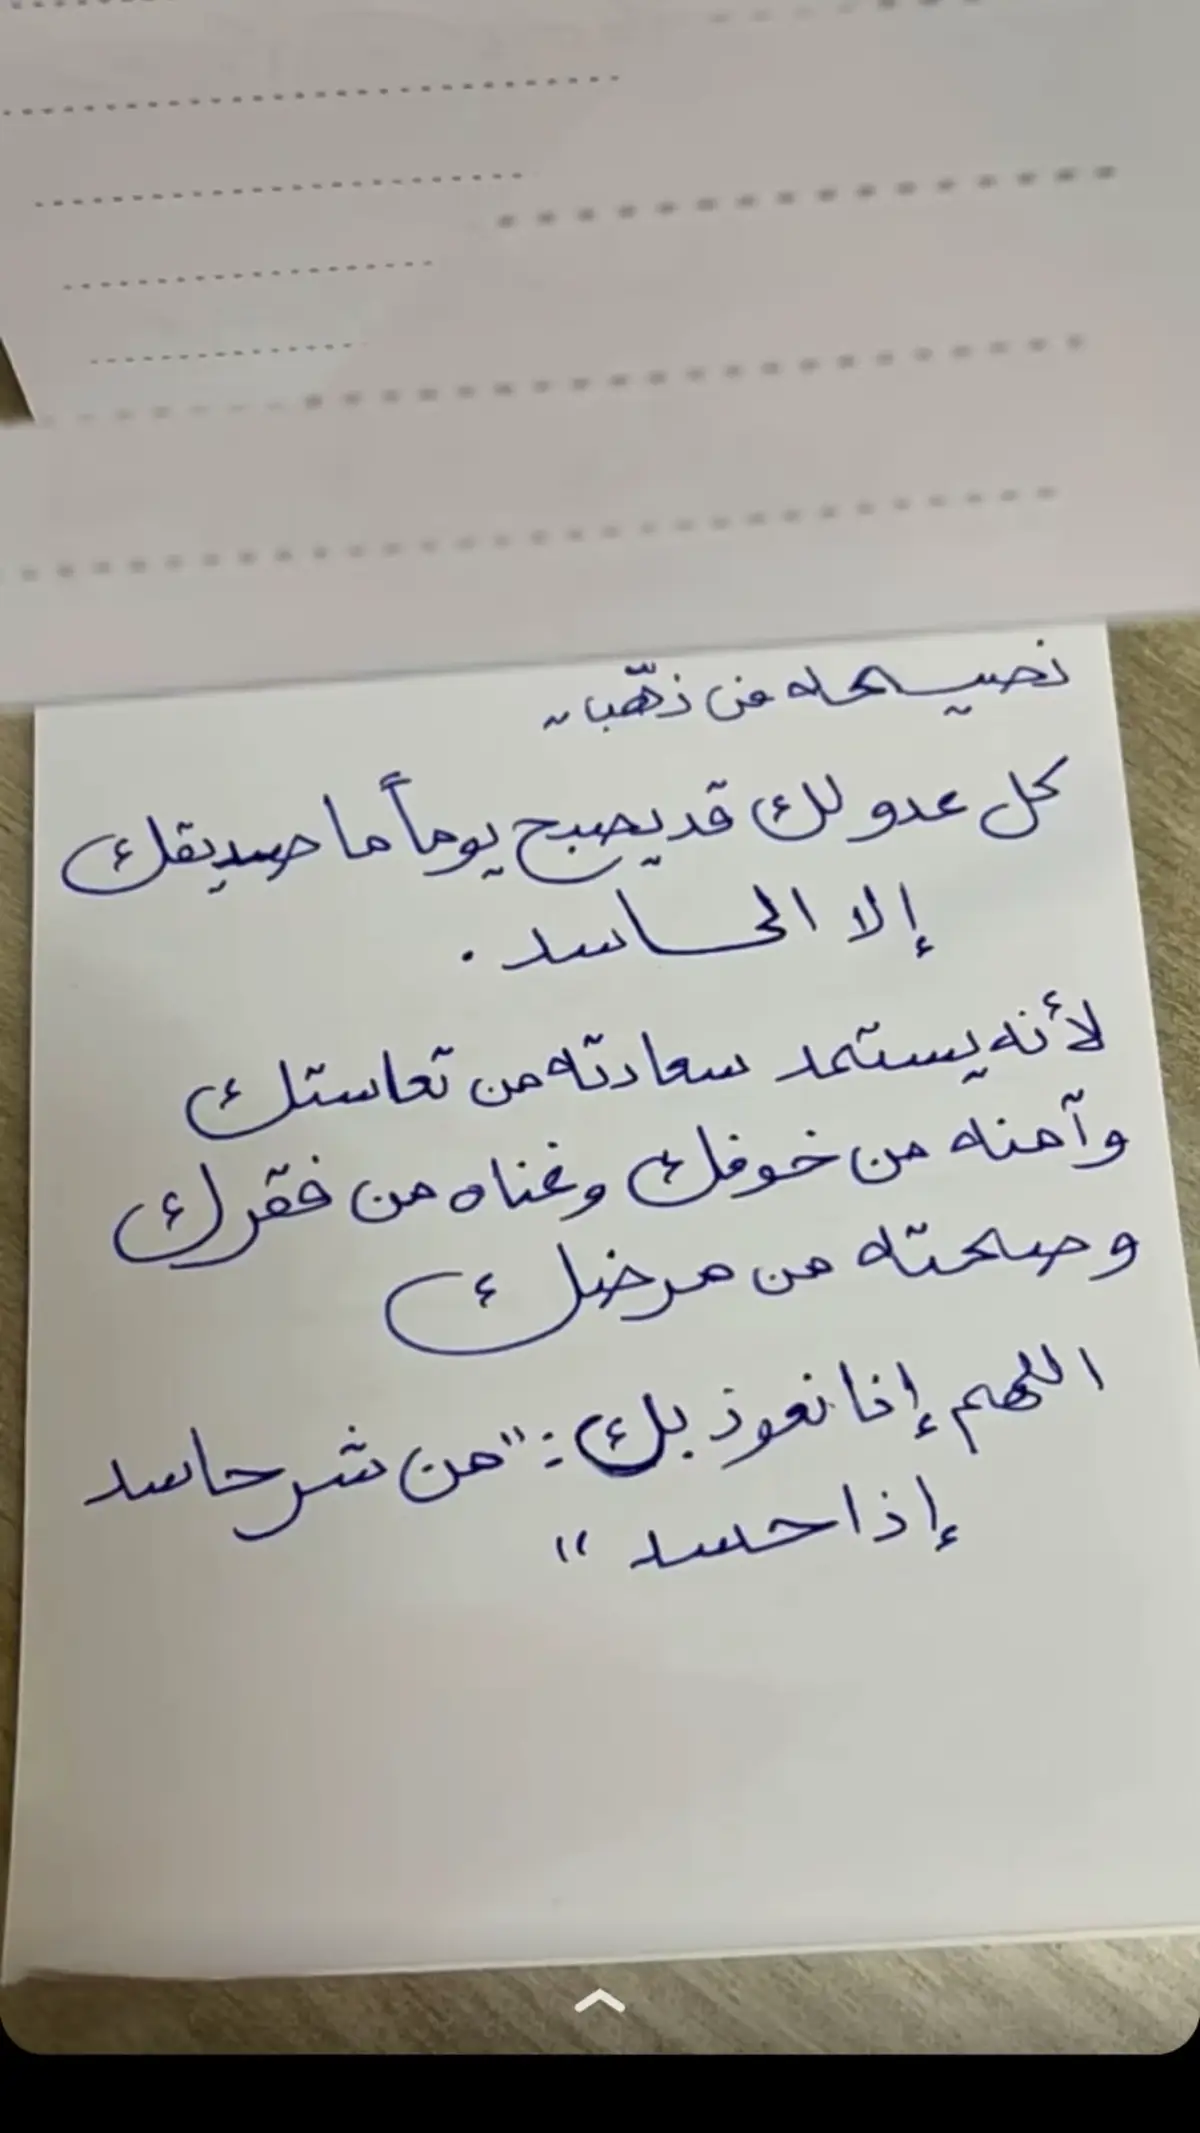 نصيحه من ذهب..
كل عدو لك قد يصبح يوماً ما صديقك
إلا الحاسد.
لأنه يستمد سعادته من تعاستك
وآمنه من خوفك وغناه من فقرك
وصحته من مرضك
اللهم إنا نعوذ بك: "من شر حاسد
إذا حسد"